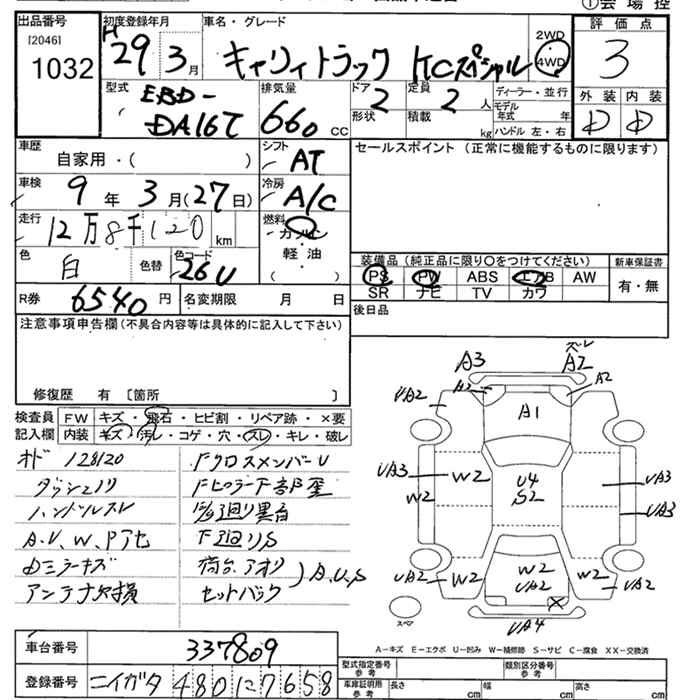 ①会場控
出品番号 初度登録年月 車名・グレード 評価点
[2046]
1032
H29年3月
キャリイトラック KCスペシャル
2WD
4WD
3
型式 排気量 ドア 定員 ディーラー・並行 外装 内装
EBD-
DA16T
660 CC
2 2人
形状 積載 kg
モデル年式 年
ハンドル 左・右
D D
車歴 シフト セールスポイント (正常に機能するものに限ります)
自家用・( )
AT
車検 冷房
9年3月(27日)
A/C
走行 燃料
12万8千120 km
ガソリン
軽油
( )
色 色替 色コード
白 26U
装備品 (純正品に限り○をつけてください) 新車保証書
PS PW ABS エアB AW
SR ナビ TV カワ
有・無
R券 6540円 名変期限 月 日
後日品
注意事項申告欄 (不具合内容等は具体的に記入して下さい)
修復歴 有 [箇所 ]
検査員 FW キズ・飛石・ヒビ割・リペア跡・×要
記入欄 内装 キズ・汚レ・コゲ・穴・スレ・キレ・破レ
オド 128120 FクロスメンバーU
ダッシュノリ Fピラー下部座
ハンドルスレ
A.U.W.Pアセ F廻りS
ミラーキズ 荷台アオリ
アンテナ欠損 セットバック
A.U.S
ズレ
A3 A2
A2
UA2 A1 UA2
UA3 W2 U4 W2 UA3
W2 S2 UA3
W2 W2 W2
UA2 UA2 UA2
UA4
スペア
A-キズ E-エクボ U-凹み W-補修跡 S-サビ C-腐食 XX-交換済
車台番号 337809
登録番号 ニイガタ 480 に 7658
型式指定番号 参考 類別区分番号 参考
車庫証明用 参考 長さ cm 幅 cm 高さ cm